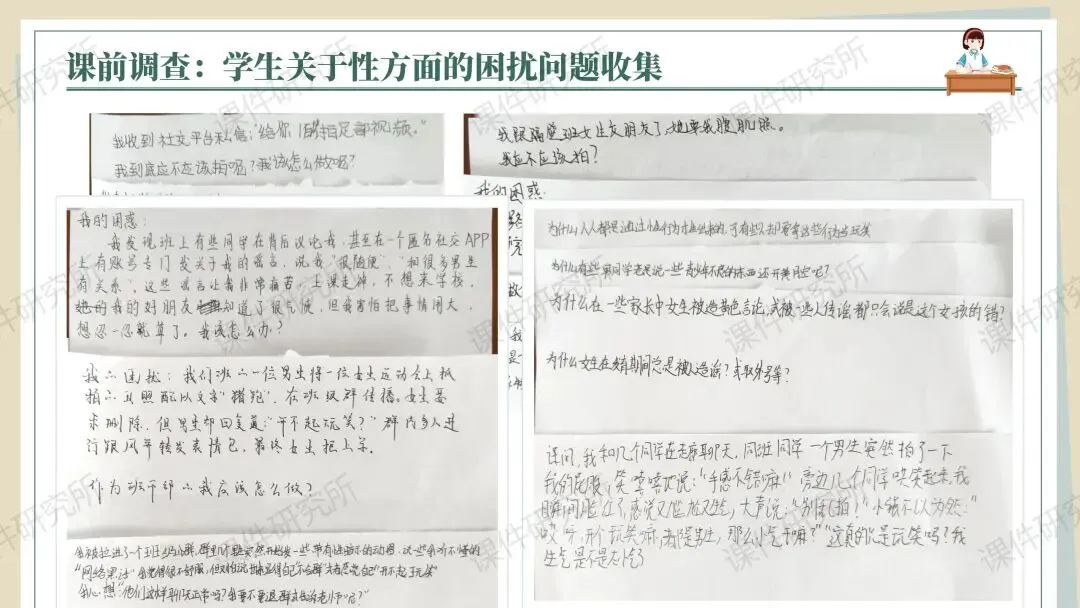 课前调查：学生关于性方面的困扰问题收集
我收到社交平台私信："给你 拍足部视频。"
我到底应不应该拍呢？我该怎么做呢？
我跟隔壁班女生交朋友了，她要我腹肌照。
我应不应该拍？
我的困惑：
我的困惑：
我发现班上有些同学在背后议论我，甚至在一个匿名社交APP
上有账号专门发关于我的谣言，说我"很随便"，"和很多男生
有关系"，这些谣言让我非常痛苦，上课走神，不想来学校，
我的好朋友知道了很气愤，但我害怕把事情闹大，
想忍一忍就算了。我该怎么办？
我的困扰：我们班的一位男生将一位女生运动会上抓
拍的 照配以文字"猪跑"，在班级群传播。女生要
求删除，但男生却回复道："开不起玩笑？"群内多人进
行跟风并转发表情包，最终女生拒上学。
作为班干部的我应该怎么做？
为什么人人都是通过性行为 出来的，可有些人却要拿这些行为当玩笑
为什么有些男同学老是说一些 的东西还开黄腔呢？
为什么在一些家长中女生被造黄色言论，或被一些人传谣都只会说是这个女孩的错？
为什么女生在发育期间总是被人造谣？或取外号等？
课间，我和几个同学在走廊聊天，同班同学一个男生突然拍了一下
我的屁股，笑嘻嘻地说："手感不错嘛！"旁边几个同学哄笑起来，我
瞬间脸红了，感觉又尴尬又生气，大声说："别乱拍！"小 不以为然："
哎呀，开个玩笑嘛，都是男生，那么小气干嘛？"这真的只是玩笑吗？我
生气是不是太小气了
我被拉进了一个班级小群，群里几个 突然开始发一些带有性暗示的动图，说一些我听不懂的
"网络黑话"我觉得很不舒服，但又怕说出来显得自己"不合群"或者 自己"开不起玩笑"
我心想："他们这样聊天正常吗？我要不要退群或告诉老师呢？"